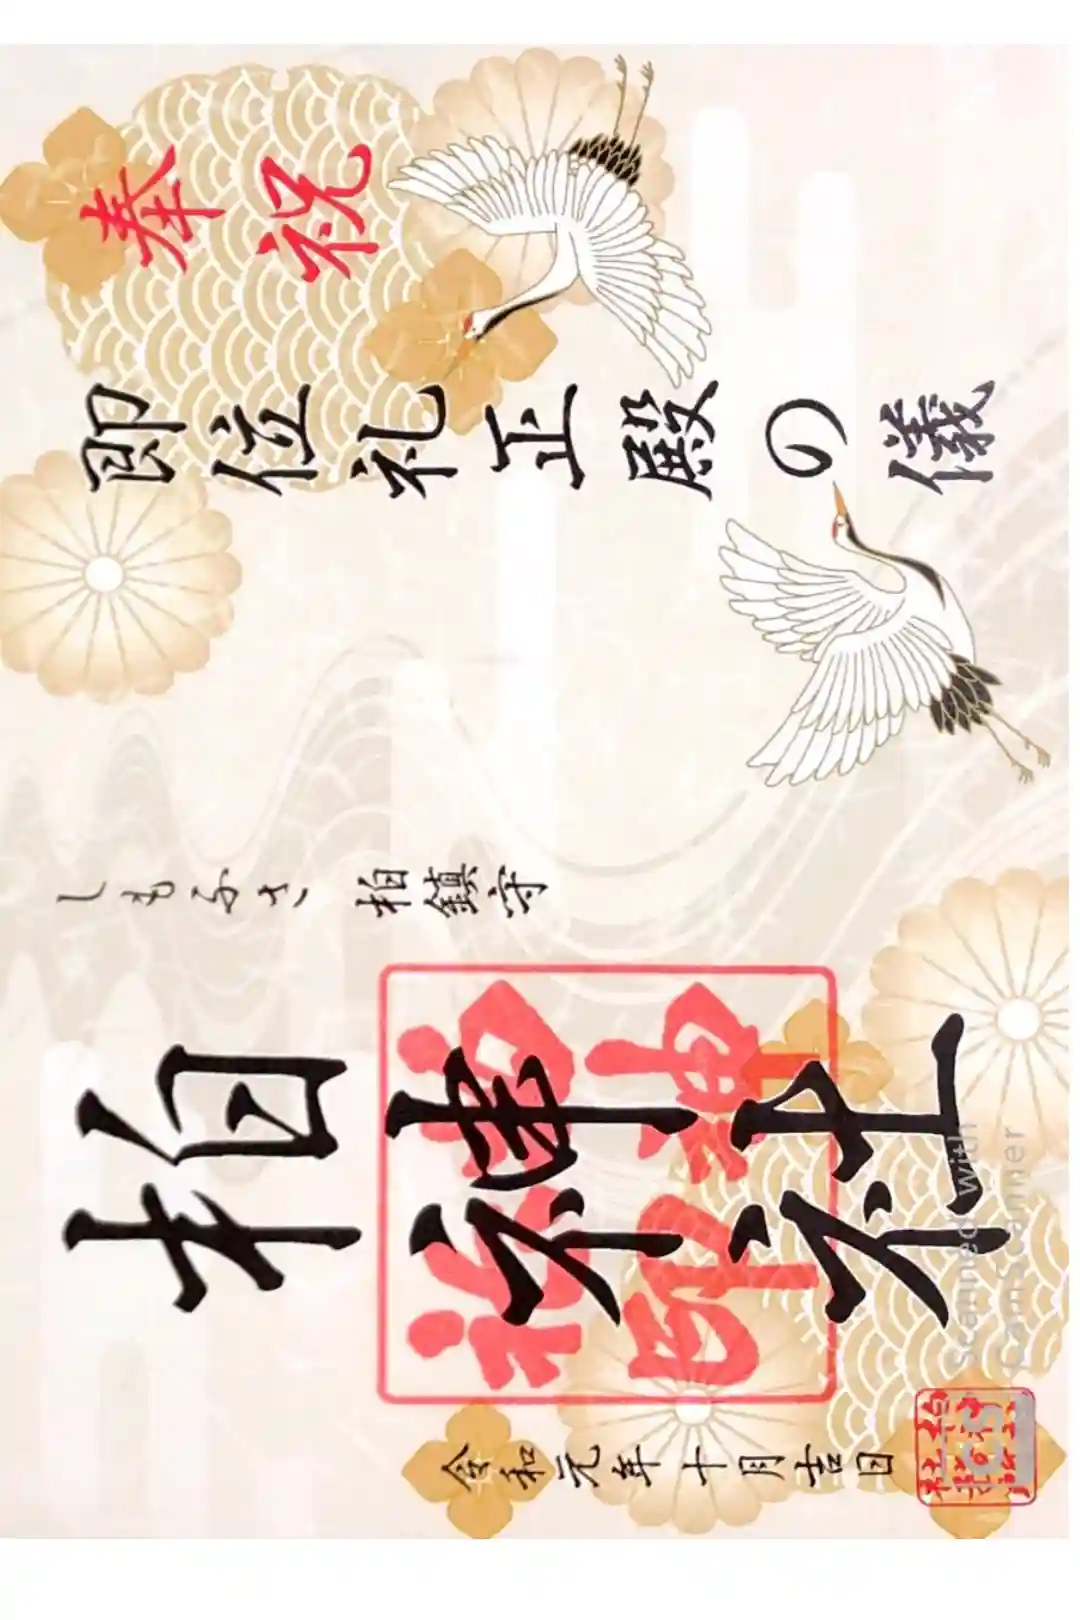 奉祝
即位礼正殿の儀
しもふさ 柏鎮守
柏神社
令和元年十月吉日
Scanned with
CamScanner
CS